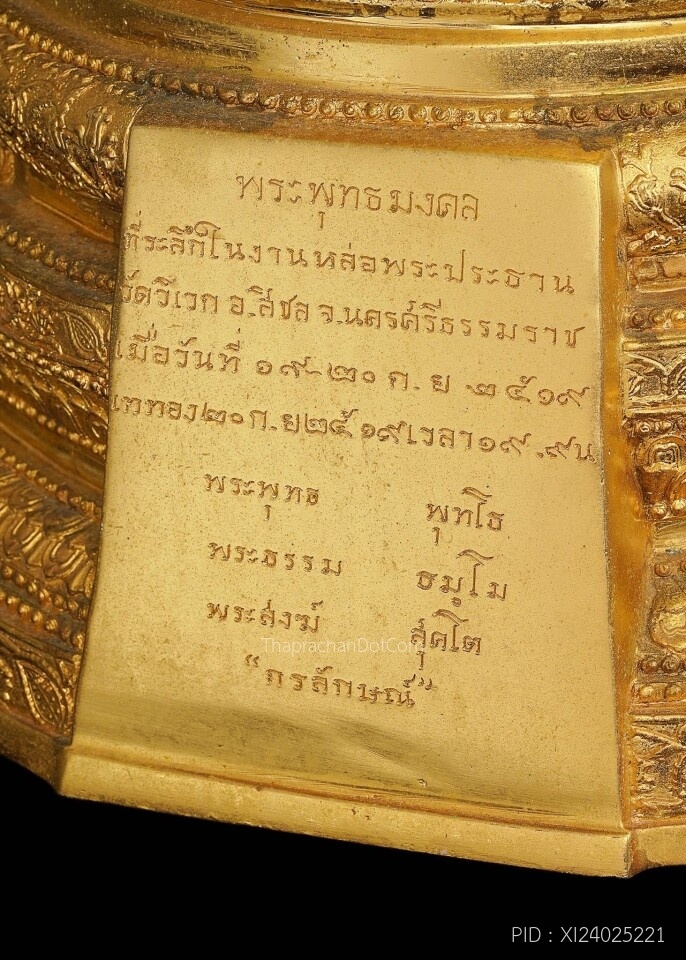 พระพุทธมงคล
ที่ระลึกในงานหล่อพระประธาน
วัดวิเวก อ.สิชล จ.นครศรีธรรมราช
เมื่อวันที่ ๑๙-๒๐ ก.ย ๒๕๑๙
เททอง๒๐ก.ย๒๕๑๙เวลา๑๙.๙น
พระพุทธ พุทโธ
พระธรรม ธมฺโม
พระสงฆ์ สุคโต
ThaprachanDotCom
“กรลักษณ์”
PID : XI24025221